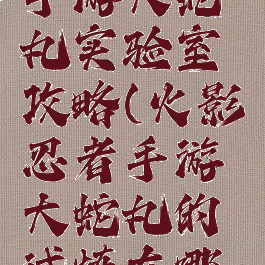 手游大蛇
丸实验室
攻略(火影
忍者手游
大蛇丸的
试炼在哪